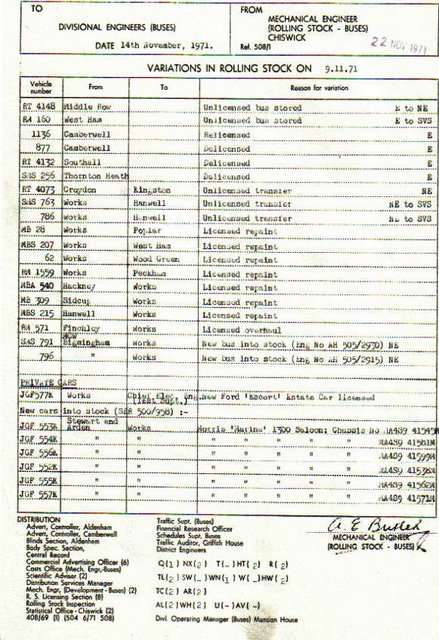 TO
DIVISIONAL ENGINEERS (BUSES)
DATE 14th November, 1971.
FROM
MECHANICAL ENGINEER
(ROLLING STOCK - BUSES)
CHISWICK
Ref. 508/1
22 NOV 1971
VARIATIONS IN ROLLING STOCK ON 9.11.71
Vehicle number From To Reason for variation
RT 4148 Middle Row Unlicensed bus stored E to NE
RM 160 West Ham Unlicensed bus stored E to SVS
1136 Camberwell Relicensed E
877 Camberwell Delicensed E
RT 4132 Southall Delicensed E
SMS 256 Thornton Heath Delicensed E
RT 4073 Croydon Kingston Unlicensed transfer NE
SMS 763 Works Hanwell Unlicensed transfer NE to SVS
786 Works Hanwell Unlicensed transfer NE to SVS
MB 28 Works Poplar Licensed repaint
MBS 207 Works West Ham Licensed repaint
62 Works Wood Green Licensed repaint
RM 1559 Works Peckham Licensed repaint
MBA 540 Hackney Works Licensed repaint
MB 309 Sidcup Works Licensed repaint
MBS 215 Hanwell Works Licensed repaint
RM 571 Finchley Works Licensed overhaul
SMS 791 MCW Birmingham Works New bus into stock (Eng No AH 505/2970) NE
796 " Works New bus into stock (Eng No AH 505/2915) NE
PRIVATE CARS
JGF577K Works Chief Elec. Eng. New Ford 'Escort' Estate Car licensed
New cars into stock (SER 500/958) :-
JGF 553K Stewart and Arden Works Morris 'Marina' 1300 Saloon: Chassis No MA4S9
JGF 554K " " " " " " "
JGF 556K " " " " " " "
JGF 552K " " " " " " "
JGF 555K " " " " " " "
JGF 557K " " " " " " "
DISTRIBUTION
Advert, Controller, Aldenham
Advert, Controller, Camberwell
Blinds Section, Aldenham
Body Spec. Section,
Central Record
Commercial Advertising Officer (6)
Costs Office (Mech. Engr.-Buses)
Scientific Adviser (2)
Distribution Services Manager
Mech. Engr, (Development - Buses) (2)
R. S. Licensing Section (8)
Rolling Stock Inspection
Statistical Office - Chiswick (2)
408/69 (1) (504 6/71 508)
Traffic Supt. (Buses)
Financial Research Officer
Schedules Supt. Buses
Traffic Auditor, Griffith House
District Engineers
Q(1) NX(2) T(-) HT(2) R(2)
TL(2) SW(-) WN(1) W(-) HW(2)
TC(2) AR(2)
AL(2) WH(2) U(-) AV(-)
Divl. Operating Manager (Buses) Mansion House
MECHANICAL ENGINEER
(ROLLING STOCK - BUSES)